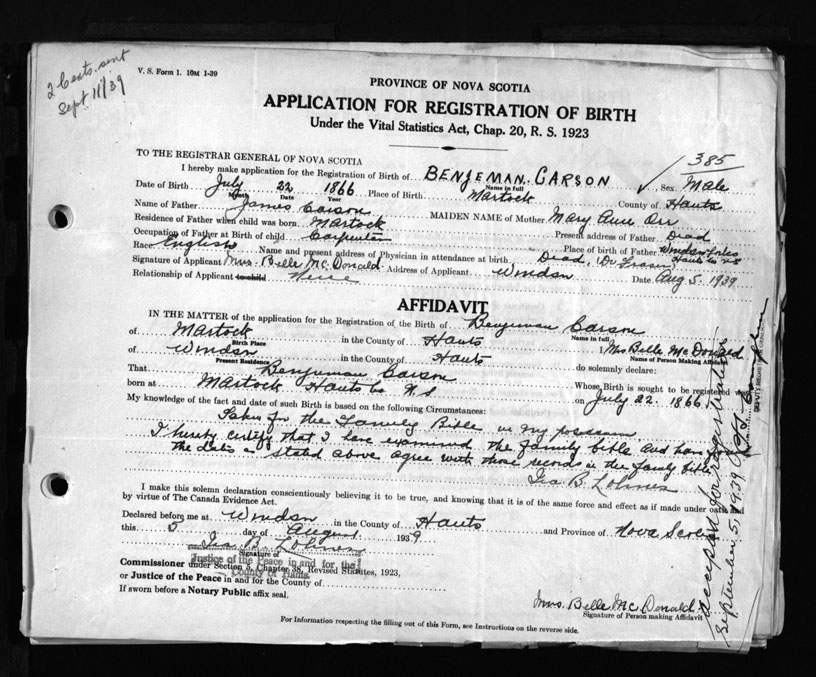 2 Certs. sent
Sept 11/39
V. S. Form 1. 10M 1-39
PROVINCE OF NOVA SCOTIA
APPLICATION FOR REGISTRATION OF BIRTH
Under the Vital Statistics Act, Chap. 20, R. S. 1923
385
TO THE REGISTRAR GENERAL OF NOVA SCOTIA
I hereby make application for the Registration of Birth of BENJEMAN. CARSON Name in full Sex Male
Date of Birth July 22 1866 Place of Birth Martock County of Hants
Month Date Year
Name of Father James Carson MAIDEN NAME of Mother Mary Ann Orr
Residence of Father when child was born Martock Present address of Father Dead
Occupation of Father at Birth of child Carpenter Place of birth of Father Windsor Forks
Hants Co NS
Race English Name and present address of Physician in attendance at birth Dead, Dr
Signature of Applicant Mrs. Belle McDonald Address of Applicant Windsor Date Aug 5. 1939
Relationship of Applicant to child Neice
AFFIDAVIT
IN THE MATTER of the application for the Registration of Birth of Benjeman Carson
Name in full
of Martock in the County of Hants I Mrs Belle McDonald
Birth Place Name of Person Making Affidavit
of Windsor in the County of Hants do solemnly declare:
Present Residence
That Benjeman Carson Whose Birth is sought to be registered was
born at Martock Hants Co N.S. on July 22. 1866
My knowledge of the fact and date of such Birth is based on the following Circumstances:
Taken from the Family Bible in my possession
I hereby certify that I have examined the family bible and
the dates as stated above agree with those records in the family bible
Ira B. Lohnes
I make this solemn declaration conscientiously believing it to be true, and knowing that it is of the same force and effect as if made under oath and
by virtue of The Canada Evidence Act.
Declared before me at Windsor in the County of Hants and Province of Nova Scotia
this 5 day of August 1939
Ira B. Lohnes
Signature of
Justice of the Peace in and for the
County of Hants
Commissioner under Section 5, Chapter 38, Revised Statutes, 1923,
or Justice of the Peace in and for County of
If sworn before a Notary Public affix seal.
Mrs. Belle McDonald
Signature of Person making Affidavit
For Information respecting the filling out of this Form, see Instructions on the reverse side.
Accepted for registration
September 5, 1939
DEPUTY REGISTRAR